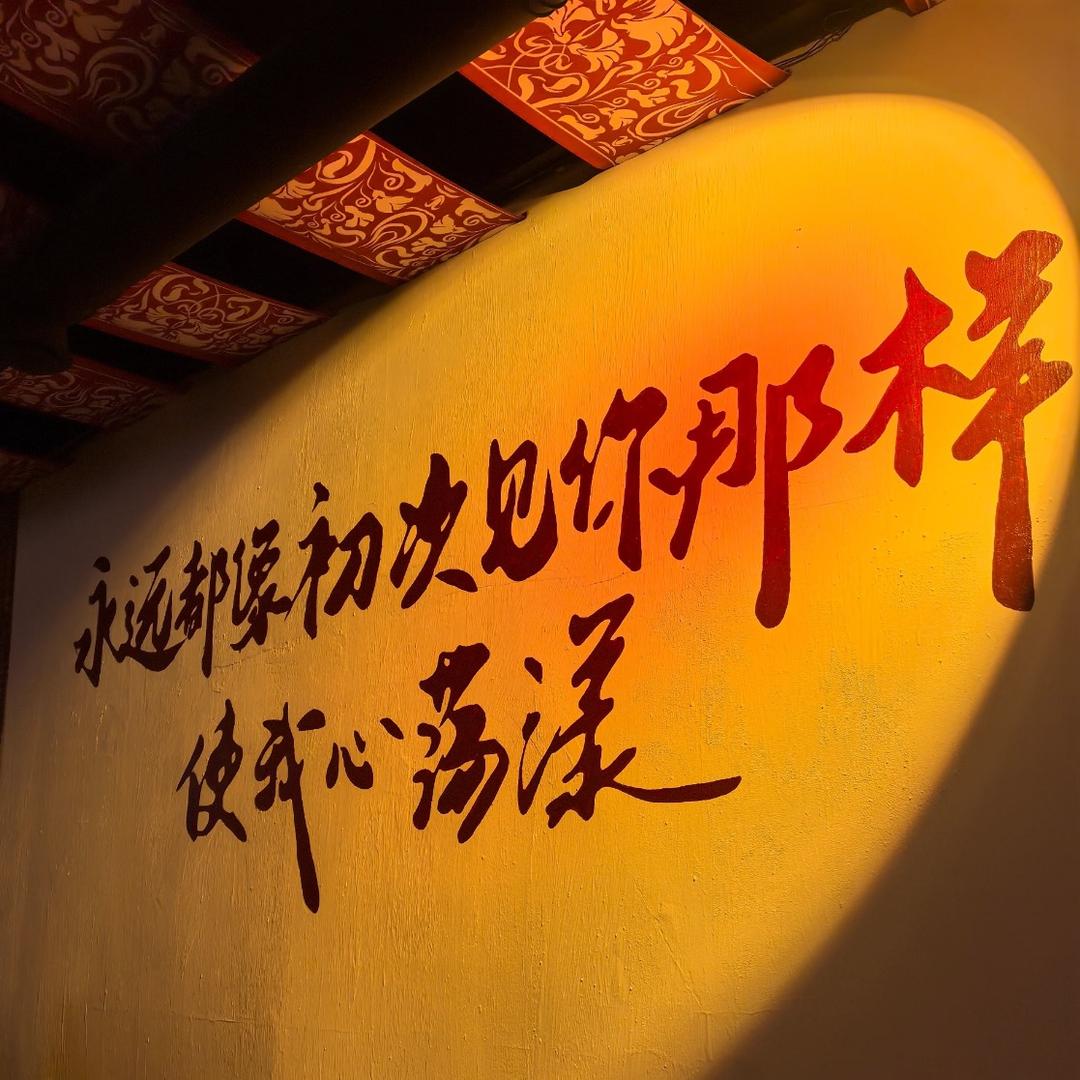 永远都像初次见你那样
使我心荡漾